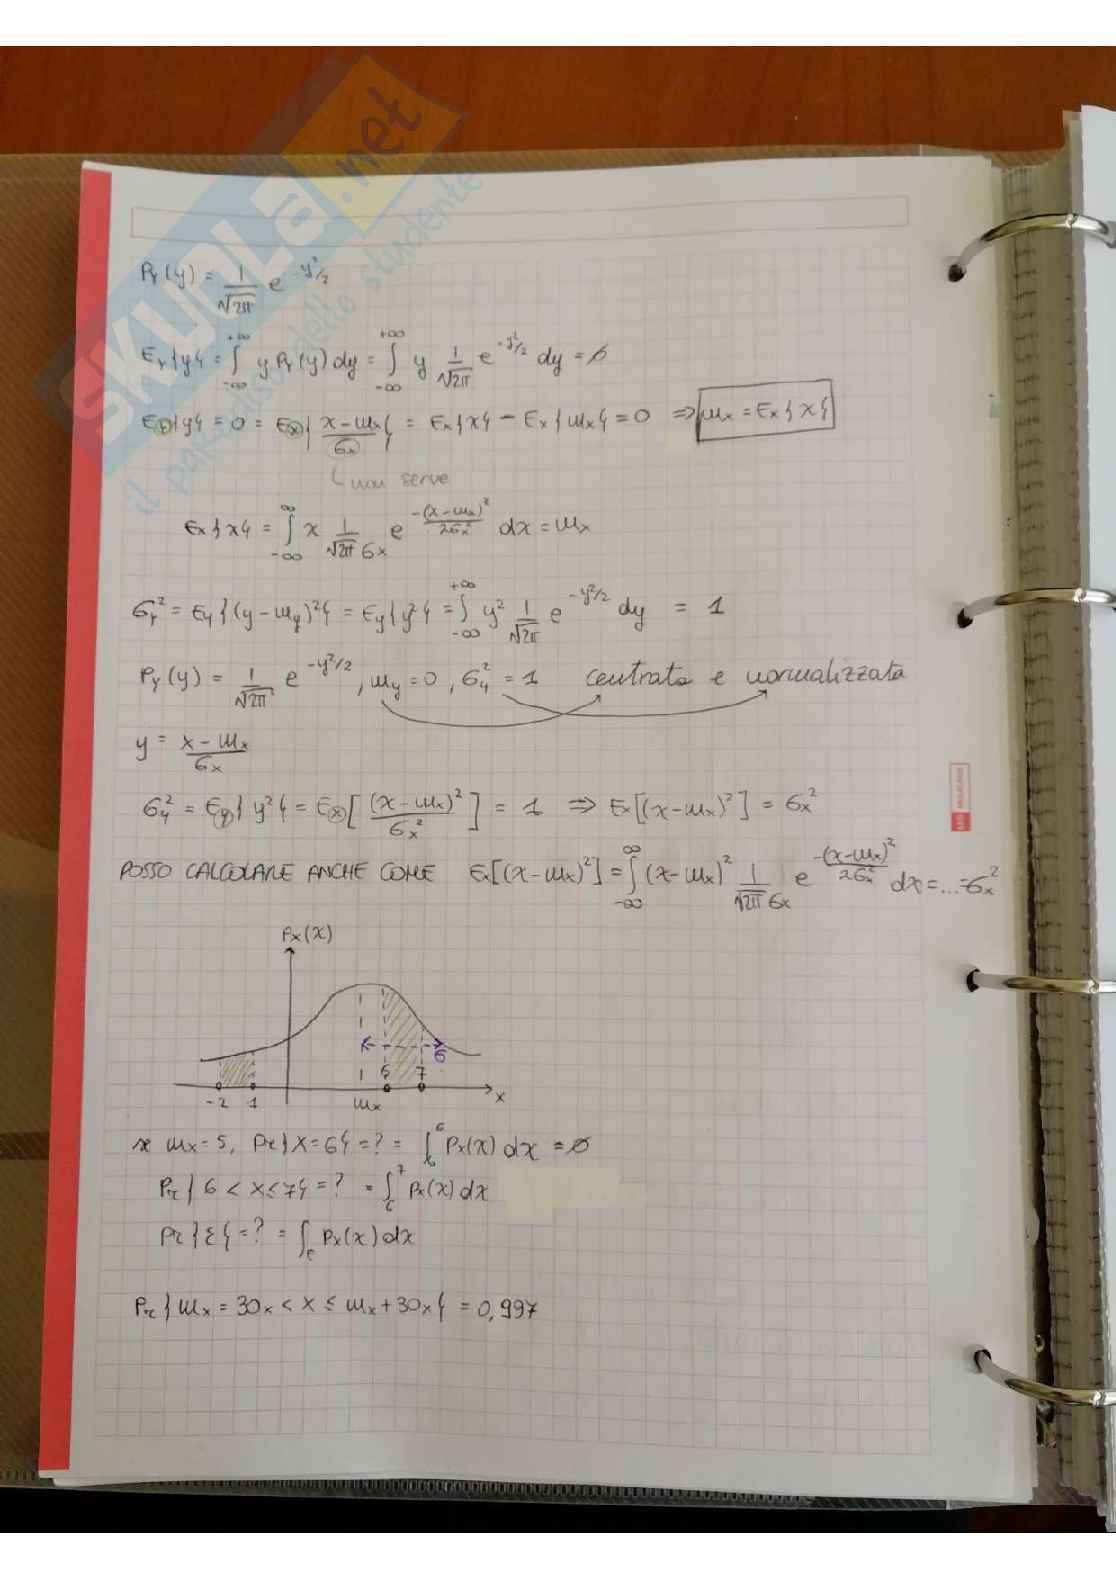 SKUOLA.net
il paradiso dello studente
P_Y(y) = 1/√2π e^{-y²/2}
E_Y{y} = ∫_{-∞}^{+∞} y P_Y(y) dy = ∫_{-∞}^{+∞} y 1/√2π e^{-y²/2} dy = 0
E_Y{y} = 0 = E_X{(x-m_x)/σ_x} = E_x{x} - E_x{m_x} = 0 ⇒ m_x = E_x{x}
non serve
E_x{x} = ∫_{-∞}^{∞} x 1/(√2π σ_x) e^{-(x-m_x)²/2σ_x²} dx = m_x
σ_Y² = E_y{(y-m_y)²} = E_y{y²} = ∫_{-∞}^{+∞} y² 1/√2π e^{-y²/2} dy = 1
P_Y(y) = 1/√2π e^{-y²/2}, m_y = 0, σ_y² = 1 centrata e normalizzata
y = (x-m_x)/σ_x
σ_y² = E_y{y²} = E_x[(x-m_x)²/σ_x²] = 1 ⇒ E_x[(x-m_x)²] = σ_x²
POSSO CALCOLARE ANCHE COME E_x[(x-m_x)²] = ∫_{-∞}^{∞} (x-m_x)² 1/(√2π σ_x) e^{-(x-m_x)²/2σ_x²} dx = ... = σ_x²
P_x(x)
σ
6 7
-2 1 m_x x
se m_x = 5, Pr{X = 6} = ? = ∫_6^6 P_x(x) dx = 0
Pr{6 < x ≤ 7} = ? = ∫_6^7 P_x(x) dx
Pr{ε} = ? = ∫_ε P_x(x) dx
Pr{m_x = 3σ_x < x ≤ m_x + 3σ_x} = 0,997